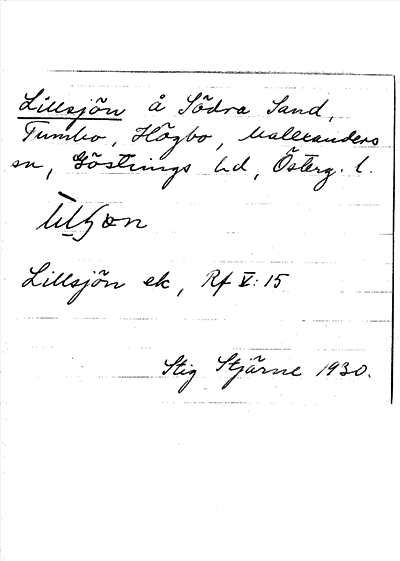 Lillsjön å Södra Sand,
Tumbo, Högbo, Malexanders
sn, Göstrings hd, Österg. l.
Lillsjön ek, Rf V:15
Stig Stjärne 1930.